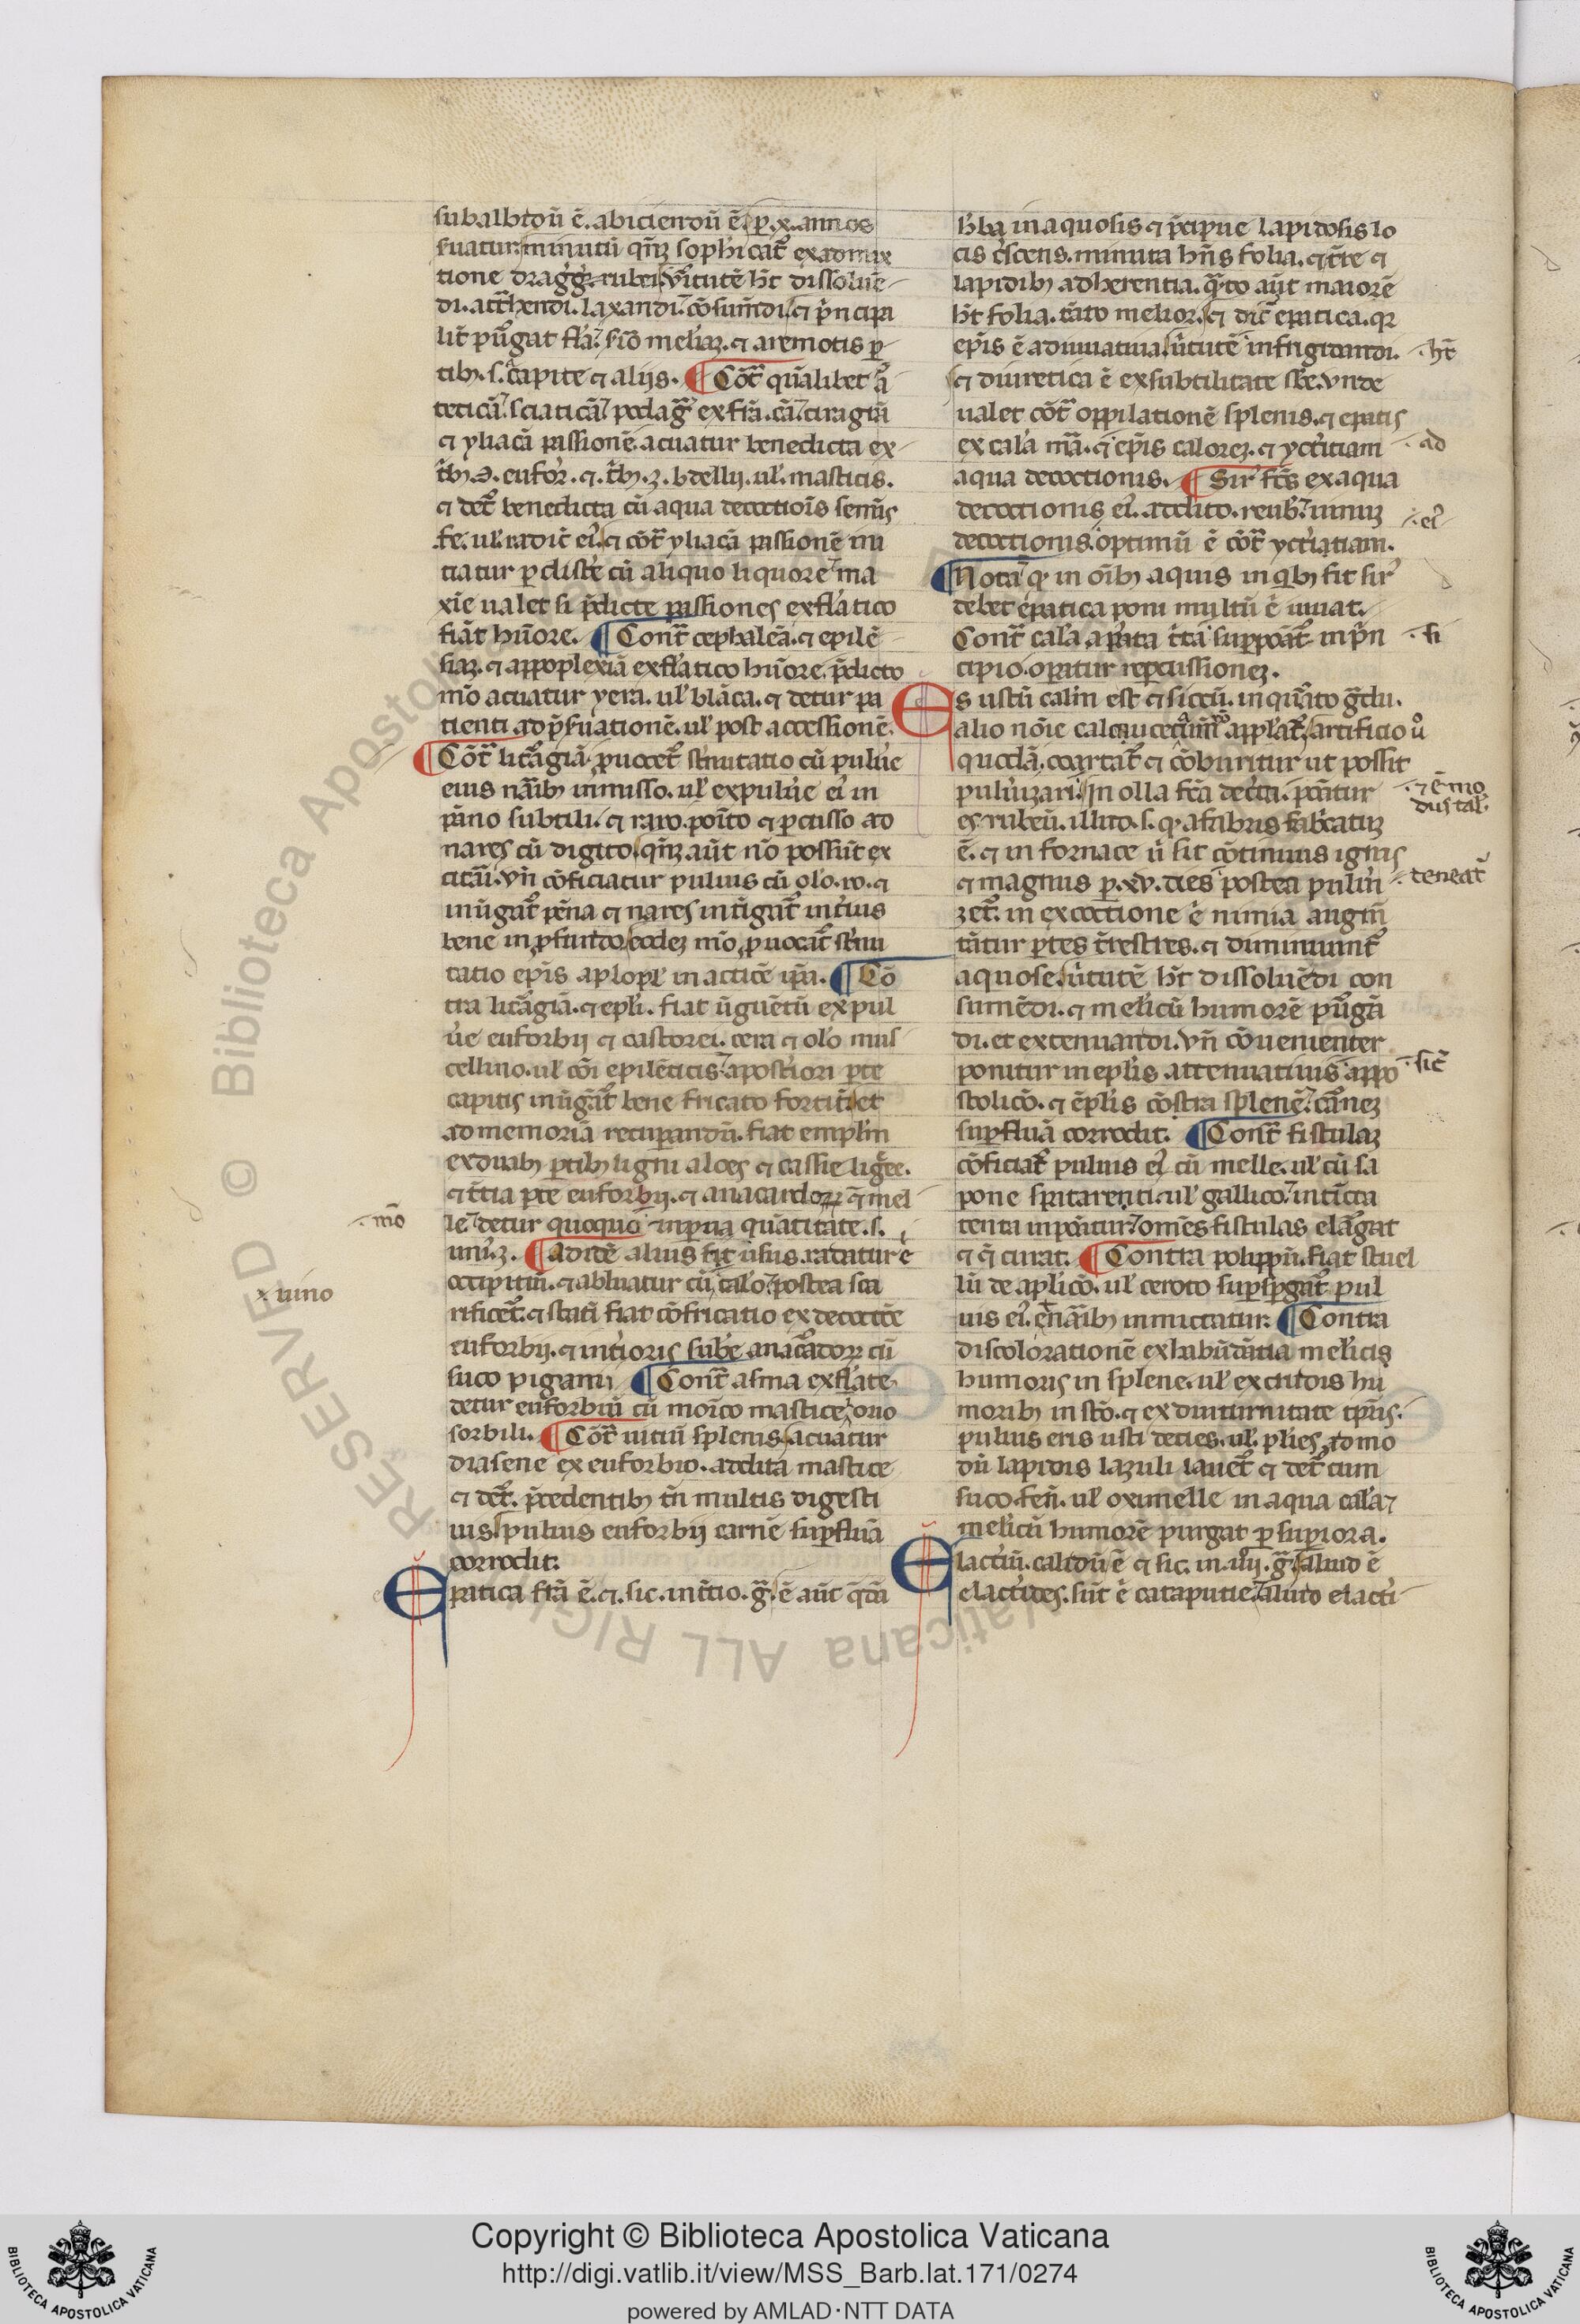 subalbidū ē. abiciendū ē. ꝑ .x. annos
ẜuatur. minutū qn̄qꝫ sophicat᷑ ex admix
tione dragg᷑. rubei. v̉tutē hꝫt dissoluē
di. att᷑hendi. laxandi. cōsum̄di. ⁊ pͥncipa
lit᷑ pᷣgat fla᷑. scd̄o melīaꝫ. ⁊ a remotis ꝑ
tibꝫ. s. capite ⁊ aliis. ¶ Cōt᷑ q̄libet ar
teticā. sciaticā. podag᷑ ex fla᷑. cā. ciragrā
⁊ yliacā passionē. acuatur benedicta ex
eufor᷑. ⁊ bdellij. ul᷑. masticis.
⁊ det᷑ benedicta cū aqua decoctiōis semīs
fe. ul᷑ radic̄ ei᷑. ⁊ cōt᷑ yliacā passionē ini
ciatur ꝑ clist᷑e cū aliquo liquore. ma
xīe ualet si p̄dicte passiones ex fla᷑tico
fiāt hūore. ¶ Cont᷑ cephaleā. ⁊ epilē
siaꝫ. ⁊ appoplexiā ex fla᷑tico hūore. p̄dicto
mō acuatur yera. ul᷑ blāca. ⁊ detur pa
tienti ad p̄ẜuationē. ul᷑ post accessionē.
¶ Cōt᷑ lita᷑giā. ꝓuocet᷑ st᷑nutatio cū pulu᷑e
eius na᷑ibꝫ inmisso. ul᷑ ex pulu᷑e ei᷑ in
pāno subtili. ⁊ raro. poīto ⁊ ꝑcusso ad
nares cū digito. qn̄qꝫ aūt nō possūt ex
citāi. vn̄ cōficiatur puluis cū olo. ro. ⁊
inūgat᷑ pēna ⁊ nares intīgāt᷑ int᷑ius
bene in ꝓfundo. eodeꝫ mō ꝓuocat᷑ st᷑nu
tatio ¶ Cō
tra lita᷑giā. ⁊ fiat ūguētū ex pul
u᷑e euforbij ⁊ castorei. cera ⁊ olo mus
cellino. ul᷑ cōi epilēticis. a post᷑iori ꝑte
capitis inūgāt᷑ bene fricato fortit᷑. et
ad memoriā recuꝑandū. fiat emplm̄
ex duabꝫ ꝑtibꝫ ligni aloes ⁊ cassie lig᷑ee.
⁊ t᷑tia ꝑte euforbij. ⁊ anacardoꝝ ⁊ mel
le. detur quoquo in ꝑua quātitate. s.
.mō
¶ Ad idē alius fit usus. radatur ē
occipitiū. ⁊ abluatur cū calo. postea sca
x uino
rificet᷑. ⁊ statī fiat cōfricatio ex decoctōe
euforbij. ⁊ int᷑ioris sube᷑ anaca᷑doꝝ cū
suco pigami ¶ Cont᷑ asma ex fla᷑te
detur euforbiū cū modico mastice. ouo
sorbili. ¶ Cōt᷑ uitiū splenis. acuatur
diasene ex euforbio. addita mastice
⁊ det᷑. p̄cedentibꝫ tn̄ multis digesti
uis. puluis euforbij carnē suꝑfluā
corrodit.
Epatica fr̄a ē. ⁊. sic. in t᷑tio. g᷑. ē aūt q̄dā
h᷑ba in aquosis ⁊ p̄cipue lapidosis lo
cis c᷑scens. minuta hn̄s folia. ⁊ t᷑re ⁊
lapidibꝫ adherentia. qᷓto aūt maiorē
hꝫt folia. tāto melior. ⁊ dic̄ epatica. qꝛ
epīs ē adiuuatiua. u᷑tutē infrigidandi. .hꝫt
⁊ diuretica ē ex subtilitate sbē. vnde
ualet cōt᷑ oppilationē splenis. ⁊ epatis
ex cala᷑ cā. ⁊ epīs caloreꝫ. ⁊ yct᷑itiam .ad
aqua decoctionis. ¶ Sir᷑ fc̄s ex aqua
decoctionis ei᷑. addito. reub᷑. .ei᷑
decoctionis. optimū ē cōt᷑ yct᷑iciam.
¶ Nota qꝫ in oībꝫ aquis in qͥbꝫ fit sir᷑
debet epatica poni multū ē iuuat.
Cont᷑ cala᷑ apᷣata t᷑ta suppoāt᷑ in pͥn .si
cipio. oꝑatur reꝑcussioneꝫ.
Es ustū calin est ⁊ siccū. in quāto g᷑du.
alio noīe calcucecumē appl᷑at᷑. artificio ū
quodā. coartat᷑ ⁊ cōburitur ut possit
puluīzari. in olla fc̄a de c᷑ta. ponitur .⁊ ē mo
dus tal᷑.
es rubeū. illud. s. qꝫ a fabris fabͥcatuꝫ
ē. ⁊ in fornace ū sit cōtinuus ignis
⁊ magnus ꝑ .xv. dies postea puluī .teneat᷑
zet᷑. in excoctione ē nimia augm̄
tātur ꝑtes t᷑restres. ⁊ diminuunt᷑
aquose. u᷑tutē hꝫt dissoluēdi con
sumēdi. ⁊ mel᷑icū humorē pᷣgā
di. et extenuandi. vn̄ cōuenienter
ponitur in eplīs attenuatiuis. appo .sic̄
stolicō. ⁊ ēplīs cōstra splenē. ca᷑neꝫ
suꝑfluā corrodit. ¶ Cont᷑ fistulaꝫ
cōficiat᷑ puluis ei᷑ cū melle. ul᷑ cū sa
pone spatarenti. ul᷑ gallico. intīcta
tenta inponitur. omēs fistulas elargat
⁊ q̄ curat. ¶ Contra polippū. fiat stuel
lū de aplīcō. ul᷑ ceroto suꝑspgat᷑ pul
uis ei᷑. ⁊ na᷑ibꝫ inmictatur. ¶ Contra
discolorationē ex habūdātia mel᷑icis
humoris in splene. ul᷑ ex crudis hu
moribꝫ in sto. ⁊ ex diuturnitate tꝑis.
puluis eris usti decies. ul᷑. plīes ad mo
dū lapidis lazuli lauet᷑ ⁊ det᷑ cum
suco. fen̄. ul᷑ oximelle in aqua cala᷑
mel᷑icū humorē purgat ꝑ suꝑiora.
Elact᷑iū. calidū ē ⁊ sic. in. iiij. g᷑. aliud ē
elact᷑ides. sūt ē cataputie. aliud elact᷑i
Copyright © Biblioteca Apostolica Vaticana
http://digi.vatlib.it/view/MSS_Barb.lat.171/0274
powered by AMLAD·NTT DATA
© Biblioteca Apostolica Vaticana ALL RIGHTS RESERVED
BIBLIOTECA APOSTOLICA VATICANA
BIBLIOTECA APOSTOLICA VATICANA